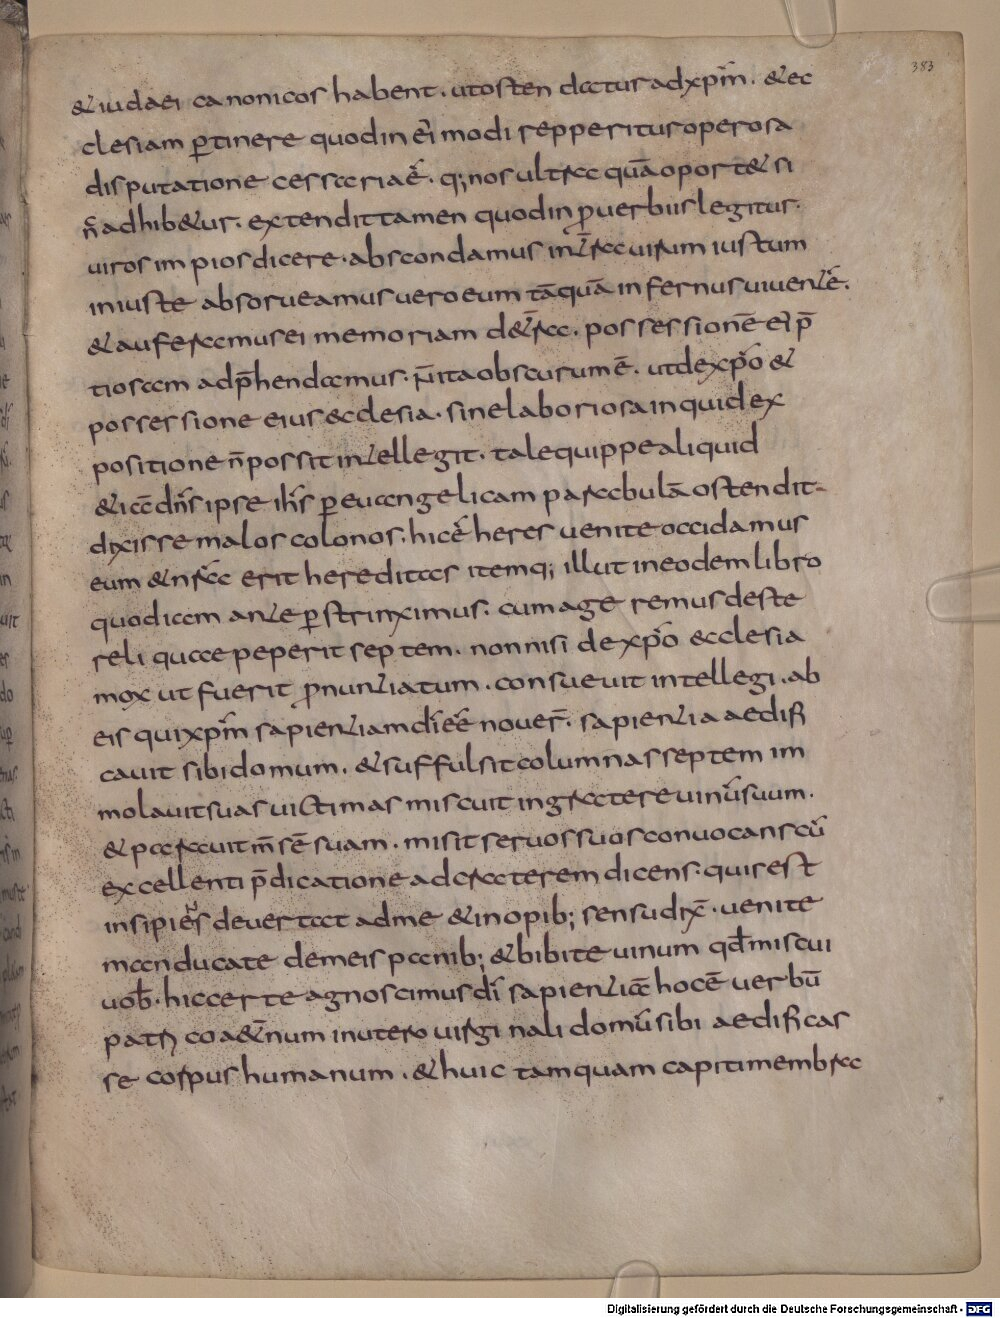 383
& iudaei canonicos habent. ut ostendatur ad xp̄m. & ec
clesiam ꝑtinere quod in ei᷒ modi repperitur operosa
disputatione cessaria ē. q; nos ultra quā oport& si
n̄ adhib&ur. extendit tamen quod in ꝓuerbiis legitur.
uiros impios dicere. abscondamus in t̄ra uirum iustum
iniuste absorueamus uero eum tāquā infernus uiuente.
& auferamus ei memoriam de t̄ra. possessionē ei᷒ p̄
tiosam adp̄hendamus. n̄ ita obscurum ē. ut de xp̄o &
possessione eius ecclesia. sine laboriosa inquid ex
positione n̄ possit intellegi. tale quippe aliquid
& iā dn̄s ipse ih̄s ꝑ euangelicam parabulā ostendit
dixisse malos colonos. hic ē heres uenite occidamus
eum & nr̄a erit hereditas itemq; illut in eodem libro
quod iam ante ꝑstrinximus. cum ageremus de ste
reli quae peperit septem. non nisi de xp̄o ecclesia
mox ut fuerit ꝓnuntiatum. consueuit intellegi. ab
eis qui xp̄m sapientiam dī eē nouer̄. sapientia aedifi
cauit sibi domum. & suffulsit columnas septem im
molauit suas uictimas miscuit in gratere uinū suum.
& parauit m̄sē suam. misit seruos suos conuocans cū
excellenti p̄dicatione ad craterem dicens. quis est
insipiens deuertat ad me & inopib; sensu dix̄. uenite
manducate de meis panib; & bibite uinum qd̄ miscui
uob̄. hic certe agnoscimus dī sapientiā hoc ē uerbū
patri coaet̄num in utero uirginali domū sibi aedificas
se corpus humanum. & huic tamquam capiti membra
Digitalisierung gefördert durch die Deutsche Forschungsgemeinschaft - DFG